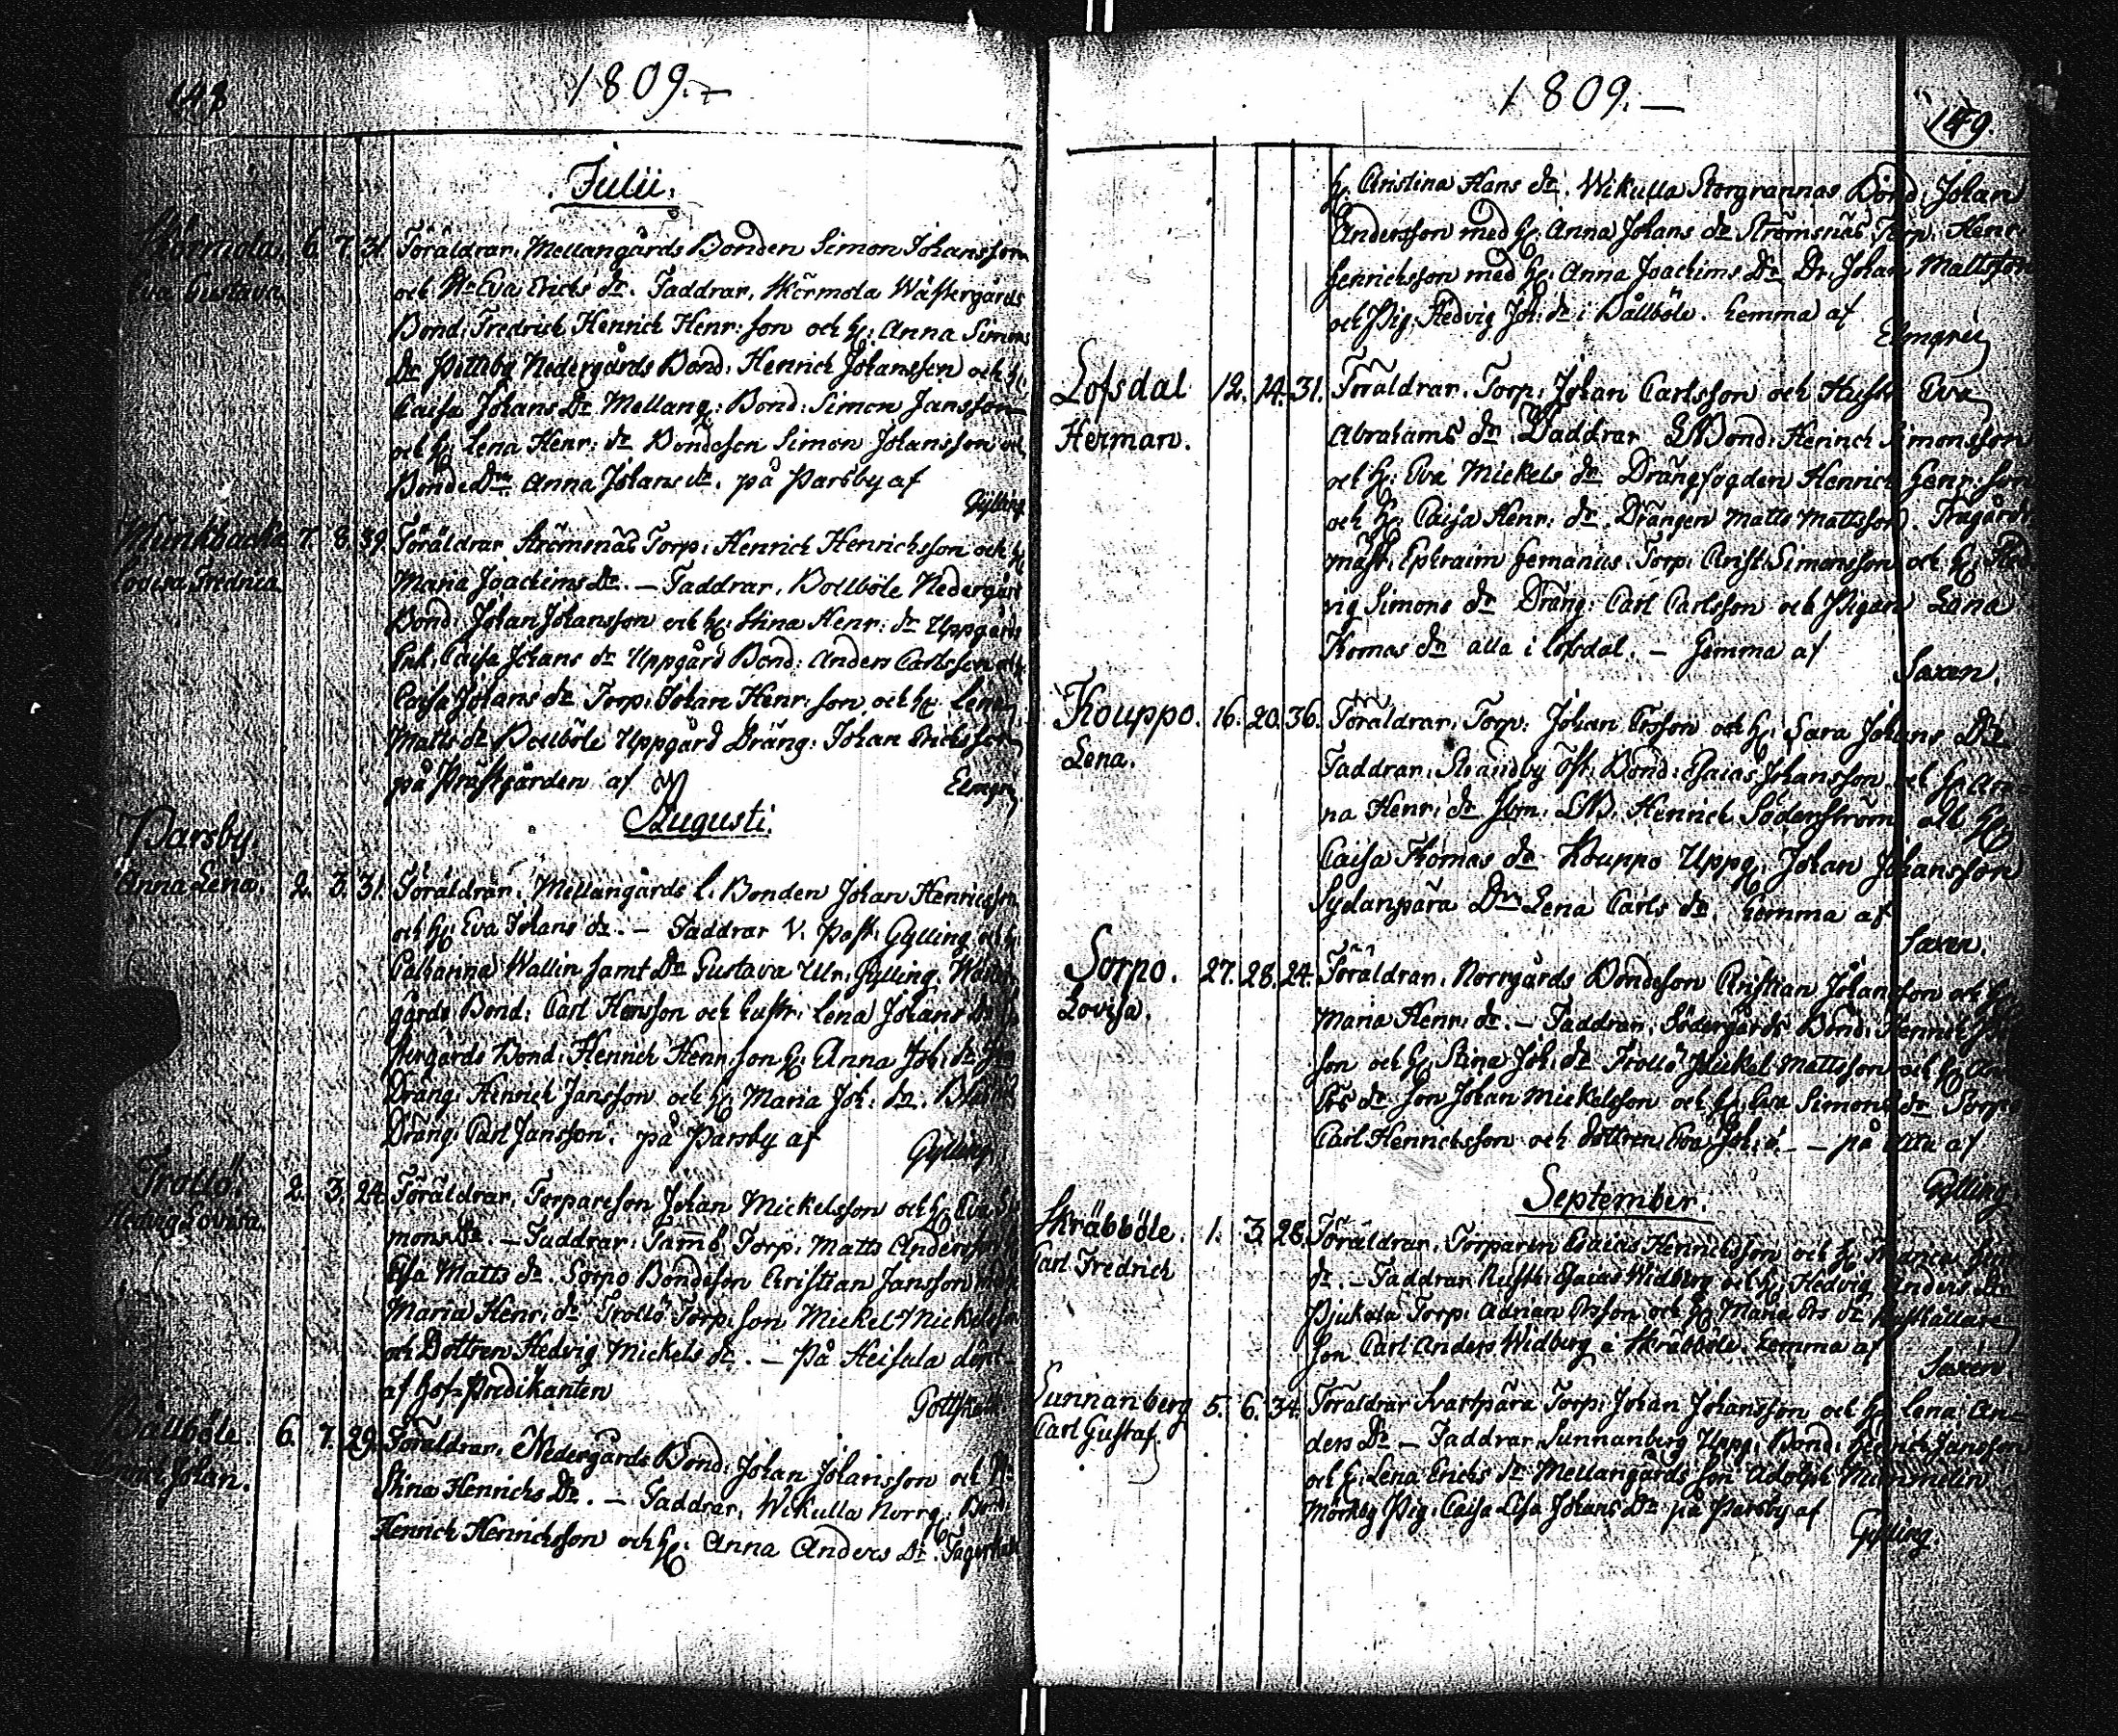 148
1809.
Julii.
Skärmola. 6. 7. 31. Föräldrar, Mellangårds Bonden Simon Johansson
Eva Gustava. och H. Eva Erichs dr. Faddrar, Skärmola Wästergårds
Bond: Fredrich Henrich Henr: son och H: Anna Simons
Dr Petteby Nedergårds Bond: Henrich Johansson och H:
Caisa Johans Dr Mellang: Bond: Simon Jansson
och H: Lena Henr: dr Bondeson Simon Johansson och
Bonde Dr Anna Johans dr. på Parsby af
Gylling
Munkbacka 7. 8. 39. Föräldrar Strömsnäs Torp: Henrich Henrichsson och H:
Lovisa Fredrica Maria Joachims Dr. – Faddrar, Bollböle Nedergård
Bond: Johan Johansson och H: Stina Henr: dr Uppgårds
Enk: Caisa Johans dr Uppgård Bond: Anders Carlsson och
Caisa Johans dr Torp: Johan Henr: son och H: Lena
Matts dr Bollböle Uppgård Dräng: Johan Ericksson
på Prästgården af
Elmgr
Augusti.
Parsby.
Anna Lena. 2. 3. 31. Föräldrar, Mellangårds l. Bonden Johan Henricsson
och H: Eva Johans dr. – Faddrar V. Past: Gylling och
Catharina Wallin samt Dr Gustava Ulr: Gylling, Wäster
gårds Bond: Carl Hensson och hustr: Lena Johans Dr
stergårds Bond: Henrich Henr: son H: Anna Joh: dr
Dräng: Henrich Jansson och H: Maria Joh: dr.
Dräng: Carl Jansson. på Parsby af
Gylling
Trollö. 2. 3. 24. Föräldrar, Torpareson Johan Mickelsson och H: Eva Si
Hedvig Lovisa. mons Dr. – Faddrar: Torp: Matts Andersson
Matts dr. Sorpo Bondeson Christian Jansson
Maria Henr: dr Trollö Torp: son Mickel Mickelsson
och Dottren Hedvig Mickels dr. – På Heisala döpt
af Hof-Predikanten
Gottsk
Bållböle. 6. 7. 29. Föräldrar, Nedergårds Bond: Johan Johansson och H:
Johan. Stina Henrichs Dr. – Faddrar, Wikulla Norrg: Bond:
Henrich Henrichsson och H: Anna Anders Dr.
1809. –
149.
H: Christina Hans dr. Wikulla Storgrannas Bond: Johan
Andersson med H: Anna Johans dr Strömsnäs Torp: Henr:
Henrichsson med H: Anna Joachims Dr Dr: Johan Mattsson
och Pig: Hedvig Joh: dr i Bållböle. hemma af
Elmgren
Lofsdal 12. 14. 31. Föräldrar. Torp: Johan Carlsson och Hustr Eva
Herman. Abrahams dr. Faddrar Bond: Henrich Simonsson
och H: Eva Mickels dr Drängfogden Henrich Henr: son
och H: Caisa Henr: dr. Drängen Matts Mattsson. Trägårds
mäst: Ephraim Torp: Christ: Simonsson och H: Hed
vig Simons dr Dräng: Carl Carlsson och Pigan Lena
Thomas dr alla i lofsdal. – Hemma af
Saxen.
Kouppo. 16. 20. 36. Föräldrar, Torp: Johan Ersson och H: Sara Johans Dr
Lena. Faddrar, Strandby Öst: Bond: Esaias Johansson och H: An
na Henr: dr Henrich Söderström och H:
Caisa Thomas dr Kouppo Uppg: Johan Johansson
Sydänperä Dr Lena Carls dr. hemma af
Saxen.
Sorpo. 27. 28. 24. Föräldrar, Norrgårds Bondeson Christian Johansson och H:
Lovisa. Maria Henr: dr. – Faddrar, Södergårds Bond: Henrich
son och H: Stina Joh: dr Trollö Mickel Mattsson och H: An
Ers dr Son Johan Mickelsson och H: Eva Simons dr Sorpo
Carl Henrichsson och dottren Eva Joh: d. – på af
Gylling
September.
Skräbböle. 1. 3. 28. Föräldrar, Torparen Esaias Henrichsson och H:
Carl Fredrich dr. – Faddrar, Rusth: Esaias Widberg och H: Hedvig Anders Dr
Pjukala Torp: Adrian Ersson och H: Maria Ers dr Rusthållare
Son Carl Anders Widberg i Skräbböle. hemma af
Saxen.
Sunnanberg 5. 6. 34. Föräldrar Svartpära Torp: Johan Johansson och H: Lena An-
Carl Gustaf. ders Dr – Faddrar, Sunnanberg Uppg: Bond: Henrich Jansson
och H: Lena Erichs dr Mellangårds Son Adolph
Mörkby Pig: Caisa Lisa Johans Dr på Parsby af
Gylling.